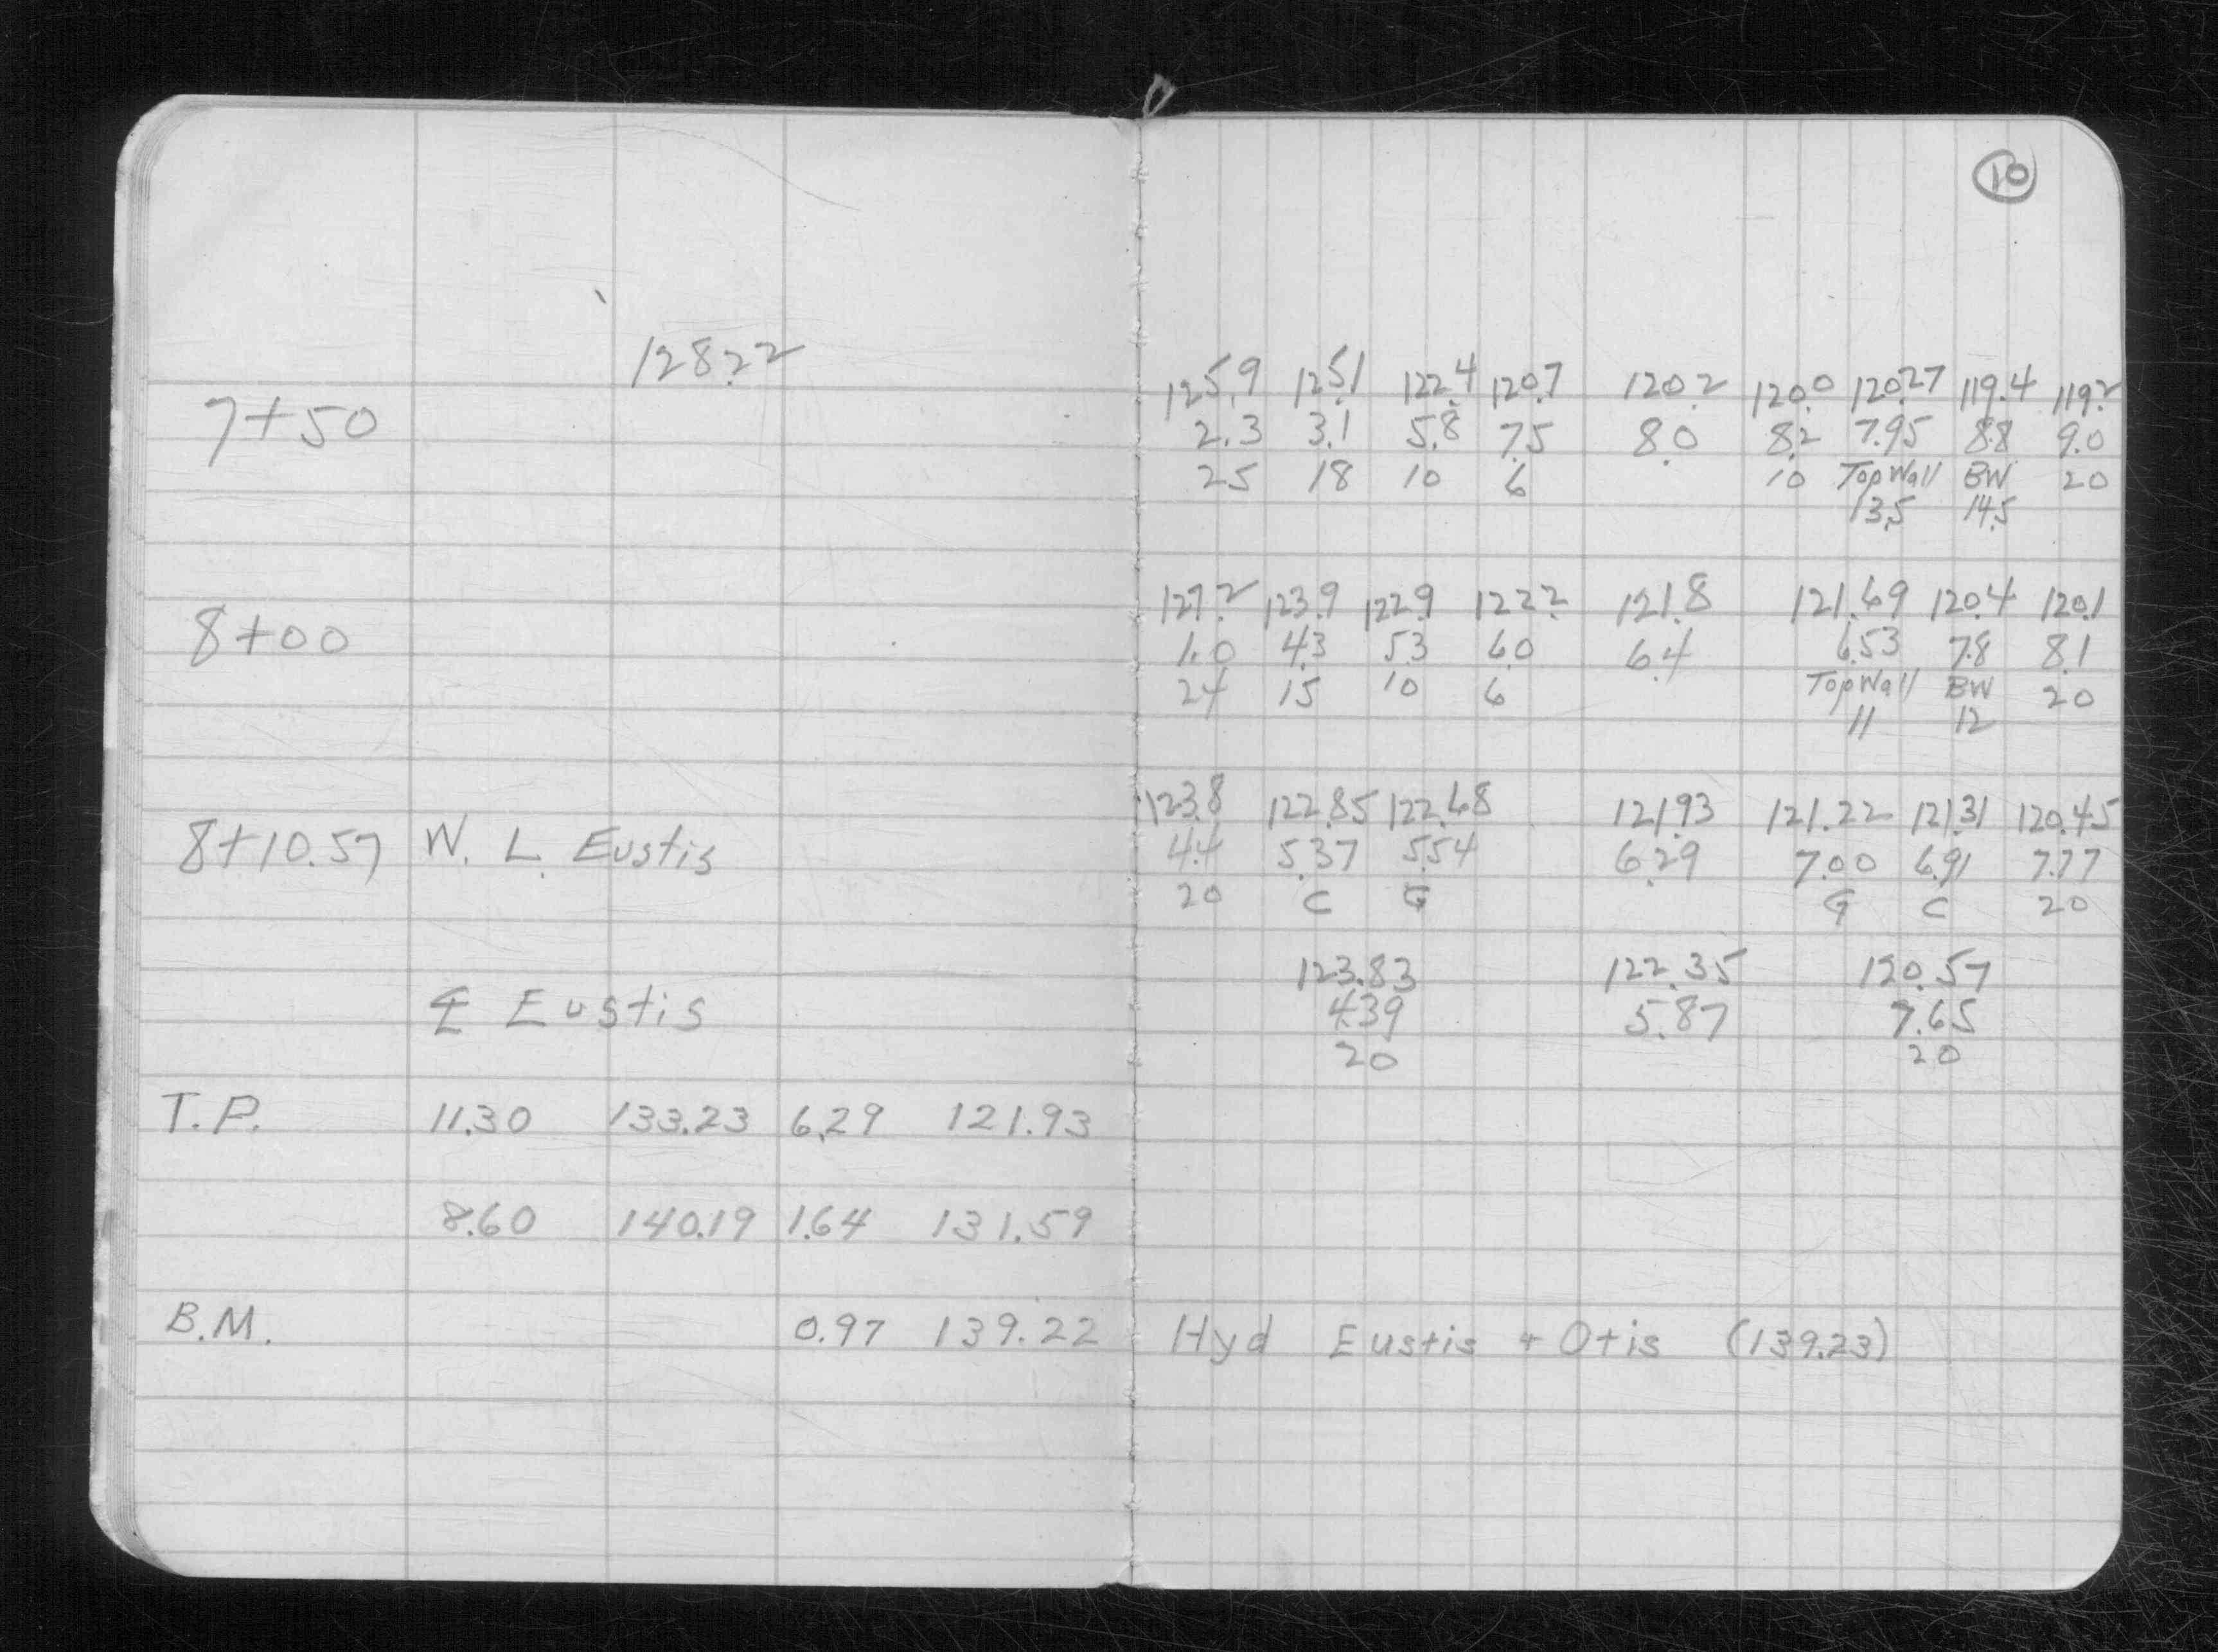 10
128.22
125.9 125.1 122.4 120.7 120.2 120.0 120.27 119.4 119.2
7+50 2.3 3.1 5.8 7.5 8.0 8.2 7.95 8.8 9.0
25 18 10 6 10 Top Wall BW 20
13.5 14.5
127.2 123.9 122.9 122.2 121.8 121.69 120.4 120.1
8+00 1.0 4.3 5.3 6.0 6.4 6.53 7.8 8.1
24 15 10 6 Top Wall BW 20
11 12
123.8 122.85 122.68 121.93 121.22 121.31 120.45
8+10.57 W. L. Eustis 4.4 5.37 5.54 6.29 7.00 6.91 7.77
20 C G G C 20
123.83 122.35 120.57
℄ Eustis 4.39 5.87 7.65
20 20
T.P. 11.30 133.23 6.29 121.93
8.60 140.19 1.64 131.59
B.M. 0.97 139.22 Hyd Eustis + Otis (139.23)